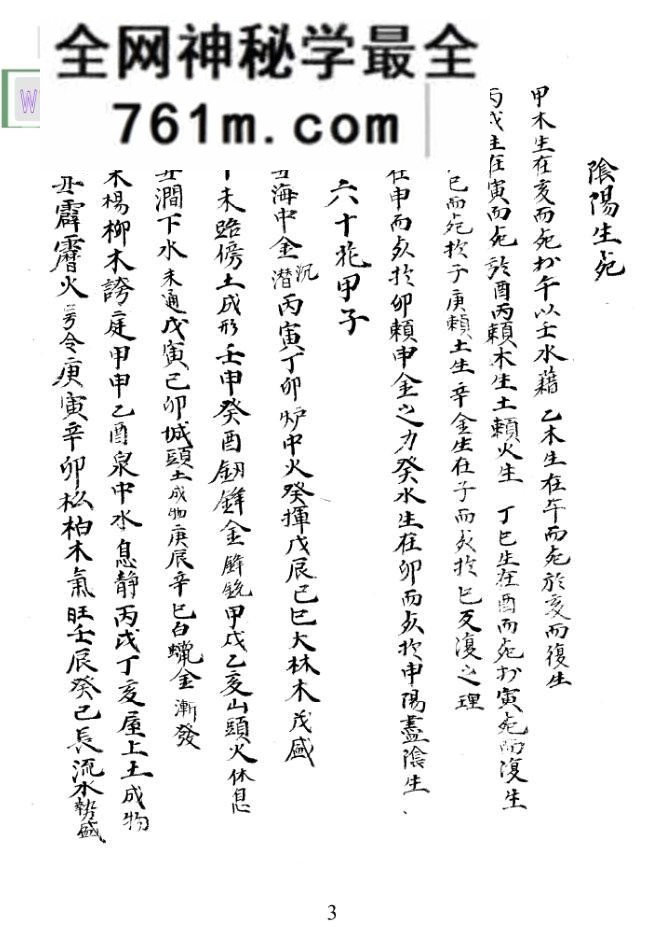 全网神秘学最全
761m.com
W
陰陽生死
甲木生在亥而死於午以壬水藉 乙木生在午而死於亥而復生
丙戊生在寅而死於酉丙賴木生土賴火生 丁巳生在酉而死於寅死而復生
巳而死於子庚賴土生辛金生在子而死於巳反復之理
在申而死於卯賴申金之力癸水生在卯而死於申陽盡陰生
六十花甲子
丑海中金沉潜丙寅丁卯炉中火癸揮戊辰己巳大林木茂盛
未路傍土成形壬申癸酉釼鋒金鋒銳甲戌乙亥山頭火休息
丑澗下水未通戊寅己卯城頭土成物庚辰辛巳白蠟金漸發
未楊柳木誇庭甲申乙酉泉中水息静丙戌丁亥屋上土成物
丑霹靂火号令庚寅辛卯松柏木氣旺壬辰癸巳長流水勢盛
3